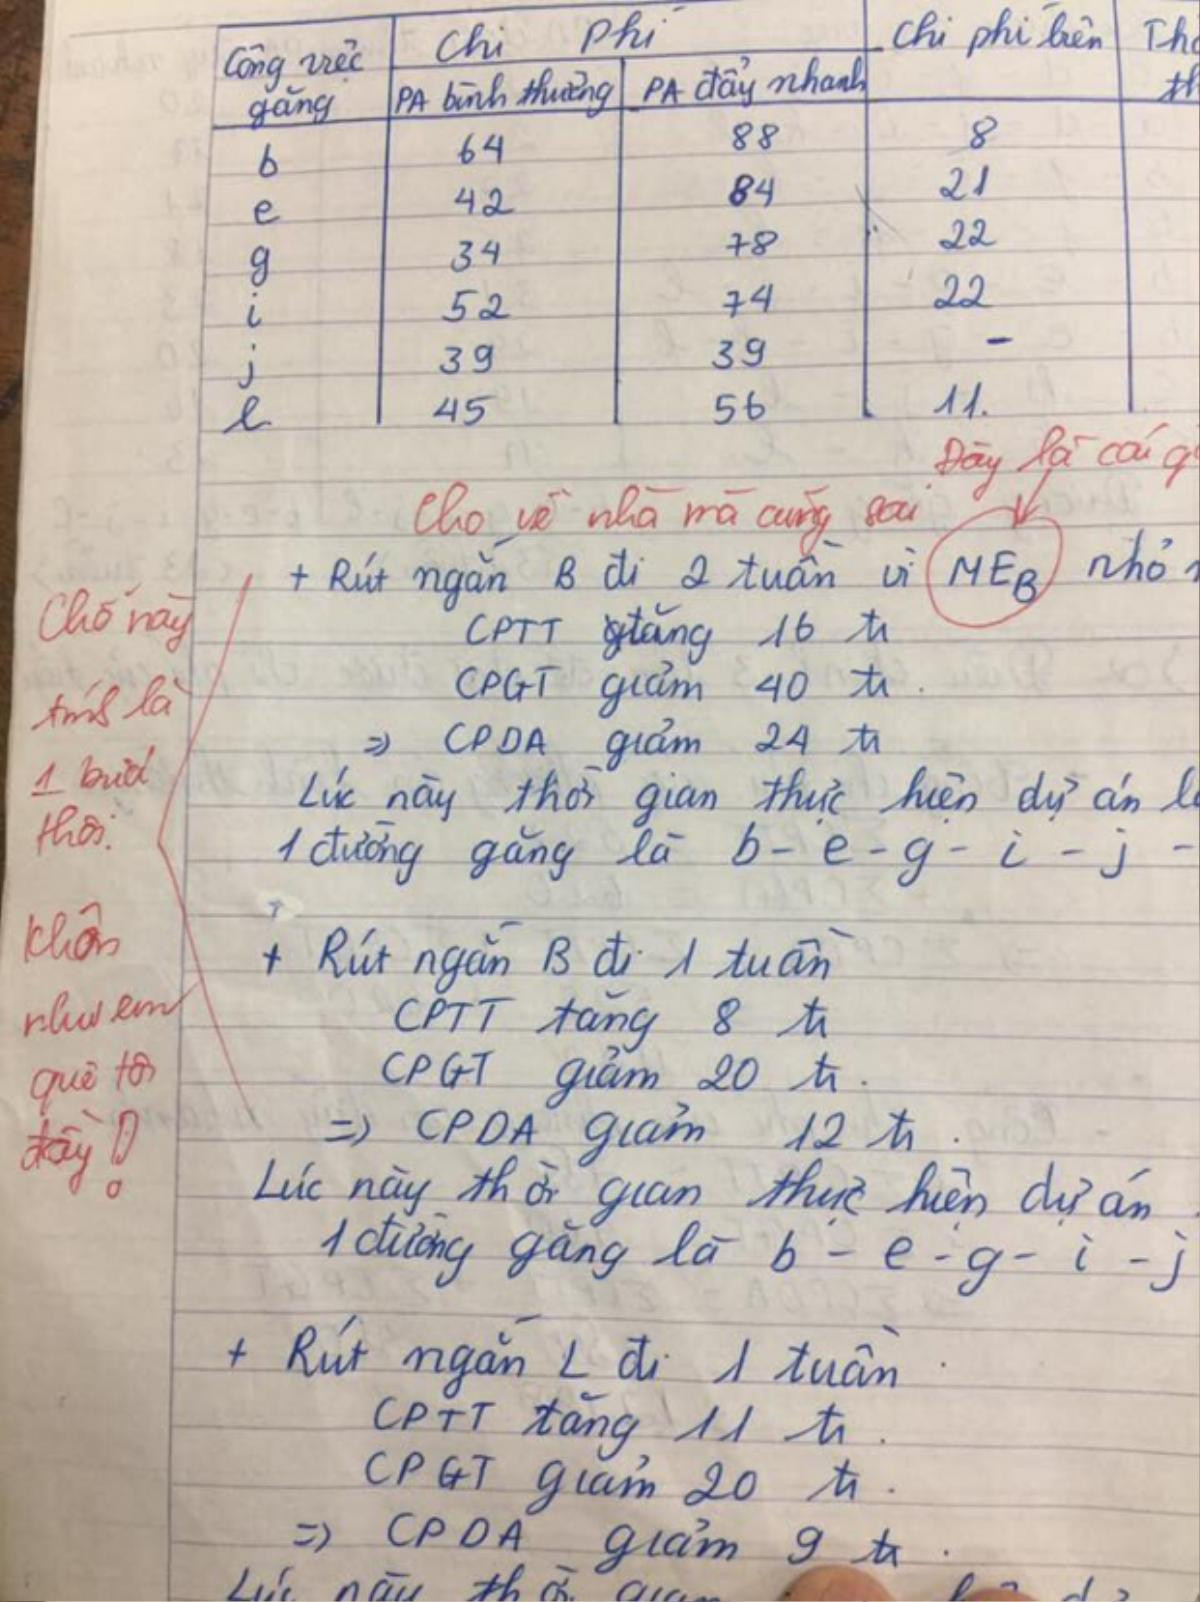 Công việc găng | Chi Phí | Chi phí biên | Thờ
PA bình thường | PA đẩy nhanh | th
b 64 88 8
e 42 84 21
g 34 78 22
i 52 74 22
j 39 39 -
l 45 56 11.
Đây là cái g
Cho về nhà mà cũng sai
+ Rút ngắn B đi 2 tuần vì MEB nhỏ
CPTT tăng 16 tr
CPGT giảm 40 tr.
=> CPDA giảm 24 tr
Lúc này thời gian thực hiện dự án
1 đường găng là b - e - g - i - j -
Chỗ này
tính là
1 bước
thôi.
Khôn
như em
quê tôi
đầy!
+ Rút ngắn B đi 1 tuần
CPTT tăng 8 tr
CPGT giảm 20 tr.
=> CPDA giảm 12 tr.
Lúc này thời gian thực hiện dự án
1 đường găng là b - e - g - i - j
+ Rút ngắn L đi 1 tuần
CPTT tăng 11 tr.
CPGT giảm 20 tr.
=> CPDA giảm 9 tr.
Lúc này thời gian